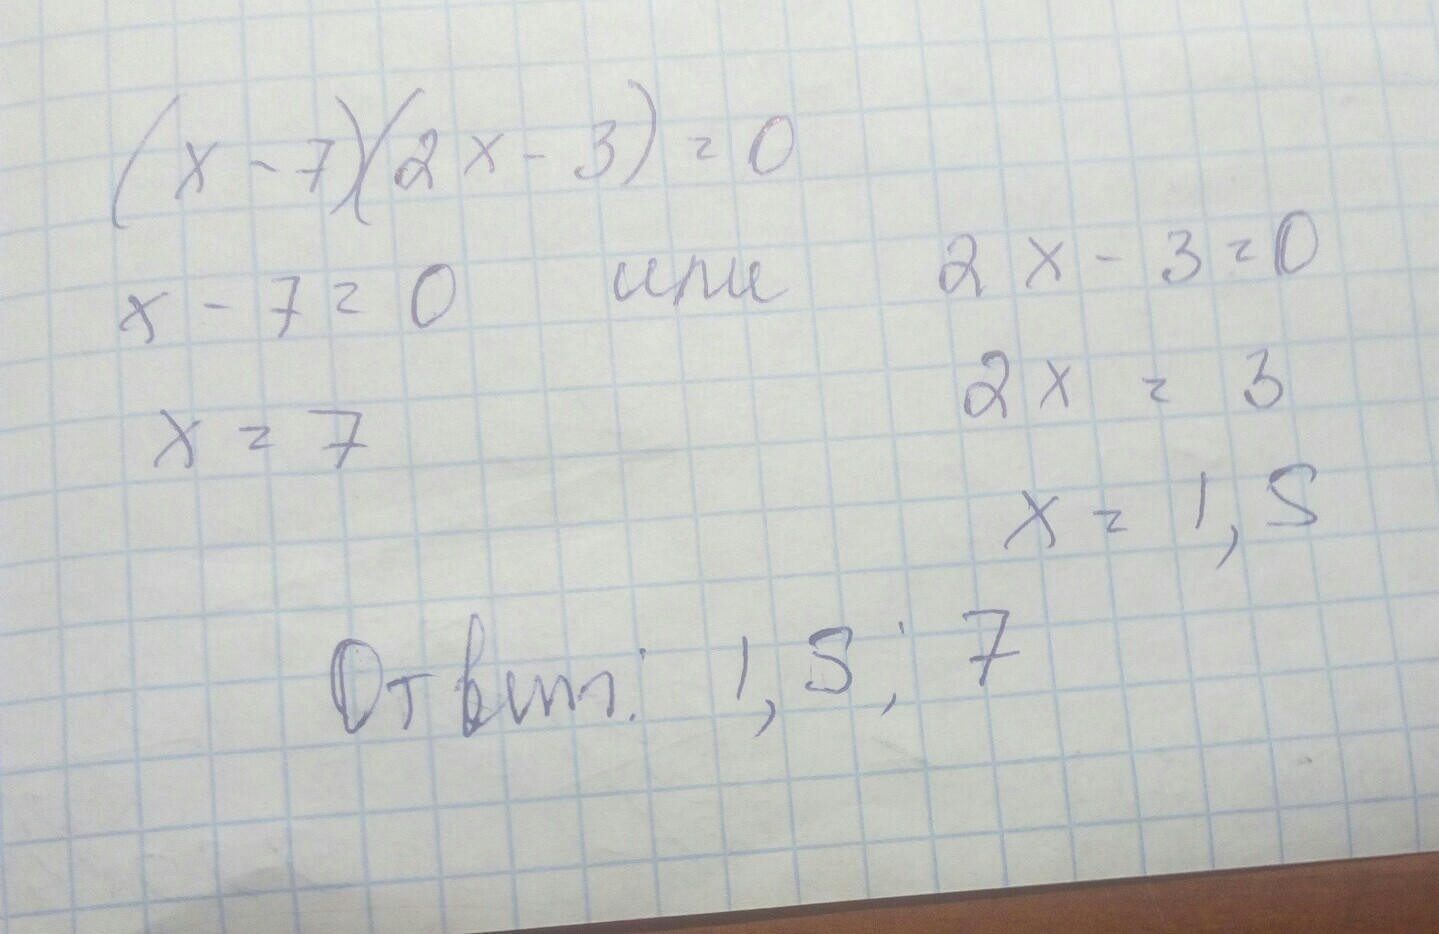 (x - 7)(2x - 3) = 0
x - 7 = 0 или 2x - 3 = 0
x = 7 2x = 3
x = 1,5
Ответ: 1,5; 7